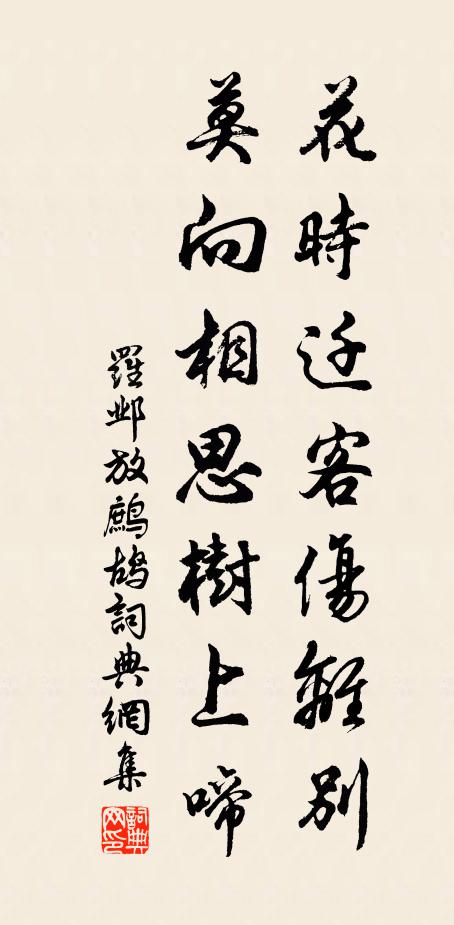 花時迁客傷離別
莫向相思樹上啼
羅邺放鷓鴣詞典網集
詞典网印